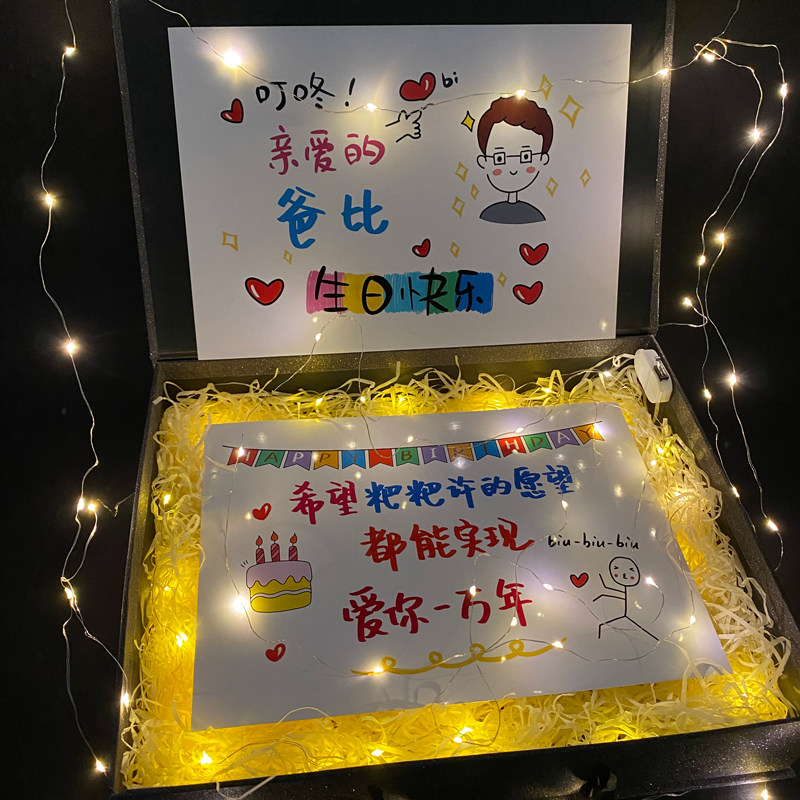 叮咚！
bi
亲爱的
爸比
生日快乐
HAPPY BIRTHDAY
希望粑粑许的愿望
都能实现
biu-biu-biu
爱你一万年